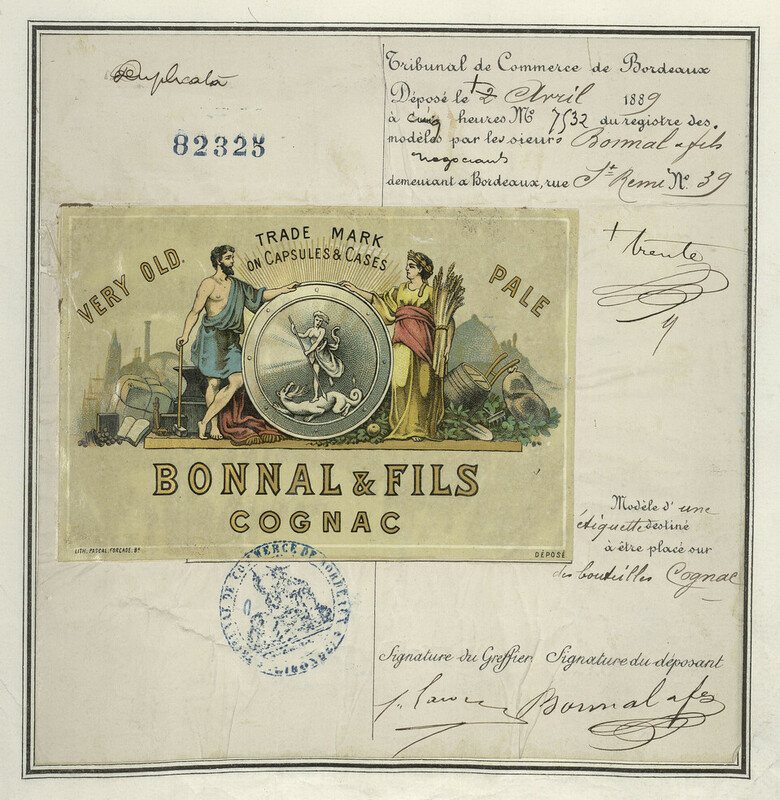 Duplicata
82325
Tribunal de Commerce de Bordeaux
Déposé le + 2 Avril 1889
à cinq heures Nº 7532 du registre des
modèles par les sieurs Bonnal & fils
negociants
demeurant à Bordeaux, rue Ste Remi Nº 39
+ trente
VERY OLD.
TRADE MARK
ON CAPSULES & CASES
PALE
BONNAL & FILS
COGNAC
LITH. PASCAL, FORCADE. Bx
DÉPOSÉ
Modèle d'une
étiquette destiné
à être placé sur
des bouteilles Cognac
TRIBUNAL DE COMMERCE DE BORDEAUX
GIRONDE
Signature du Greffier Signature du déposant
Bonnal & fs